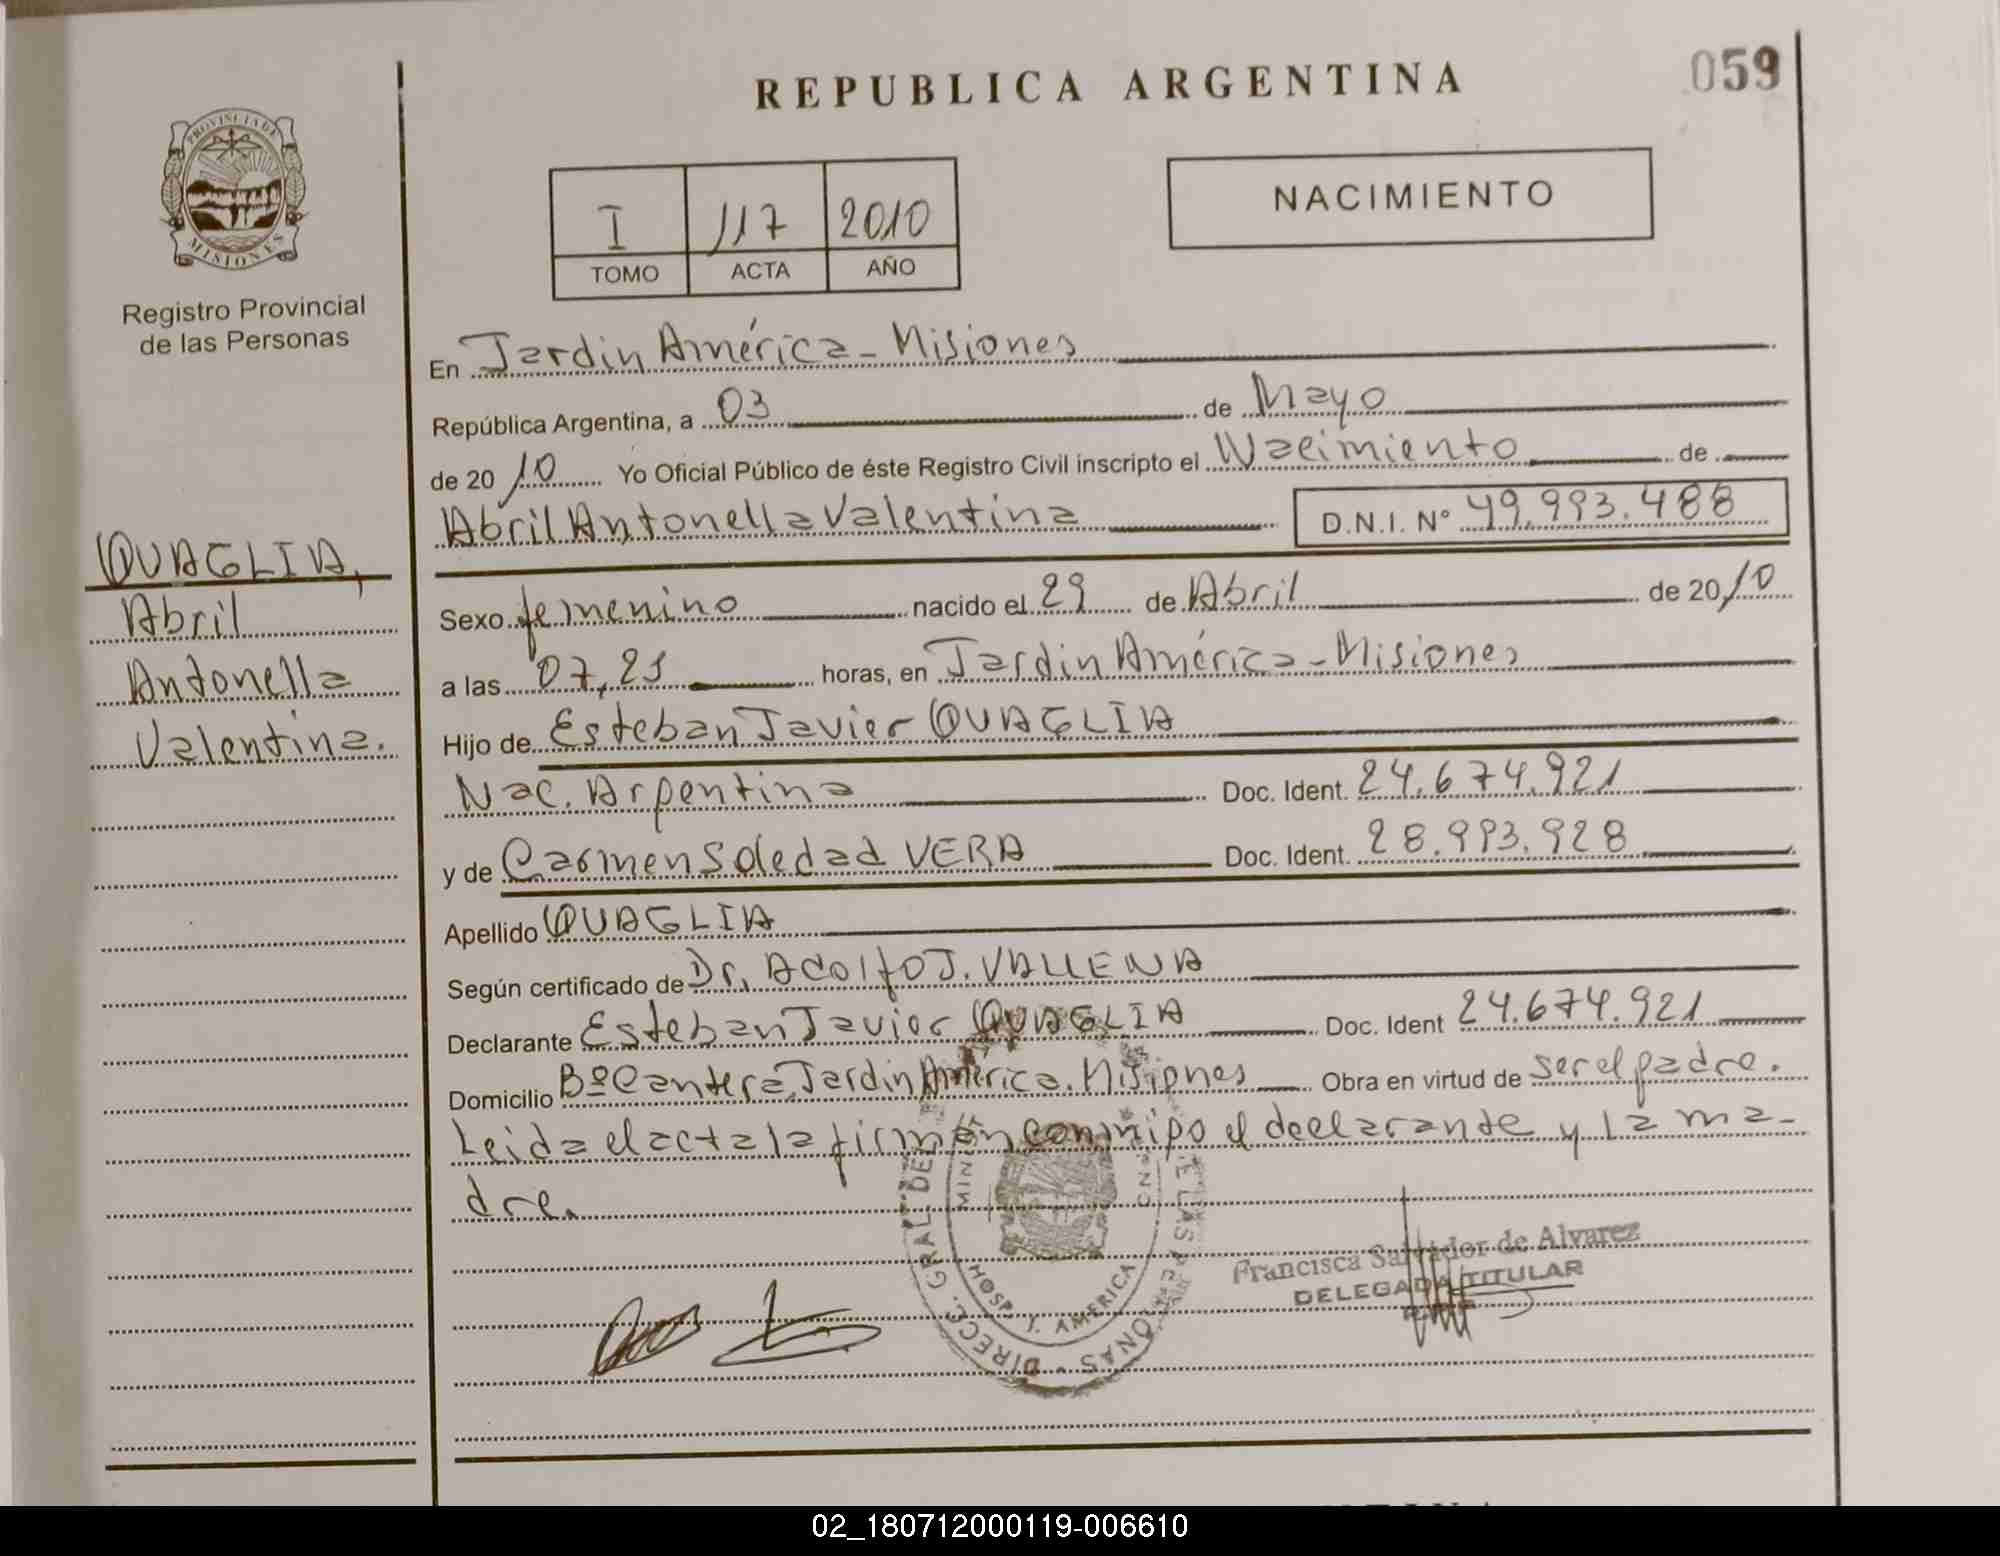 REPUBLICA ARGENTINA
059
PROVINCIA DE
MISIONES
Registro Provincial
de las Personas
I 117 2010
TOMO ACTA AÑO
NACIMIENTO
QUAGLIA,
Abril
Antonella
Valentina.
En Jardín América - Misiones
República Argentina, a 03 de Mayo
de 2010 Yo Oficial Público de éste Registro Civil inscripto el Nacimiento de
Abril Antonella Valentina D.N.I. Nº 49.993.488
Sexo femenino nacido el 29 de Abril de 2010
a las 07,25 horas, en Jardín América - Misiones
Hijo de Esteban Javier QUAGLIA
Nac. Argentina Doc. Ident. 24.674.921
y de Carmen Soledad VERA Doc. Ident. 28.993.928
Apellido QUAGLIA
Según certificado de Dr. Adolfo J.
Declarante Esteban Javier QUAGLIA Doc. Ident 24.674.921
Domicilio Bº Cantera, Jardín América. Misiones Obra en virtud de ser el padre.
Leida el acta la firman conmigo el declarante y la ma-
dre.
DIRECC. GRAL. DE LAS PERSONAS
HOSP. J. AMERICA
Francisca Salvador de Alvarez
DELEGADA TITULAR
02_180712000119-006610